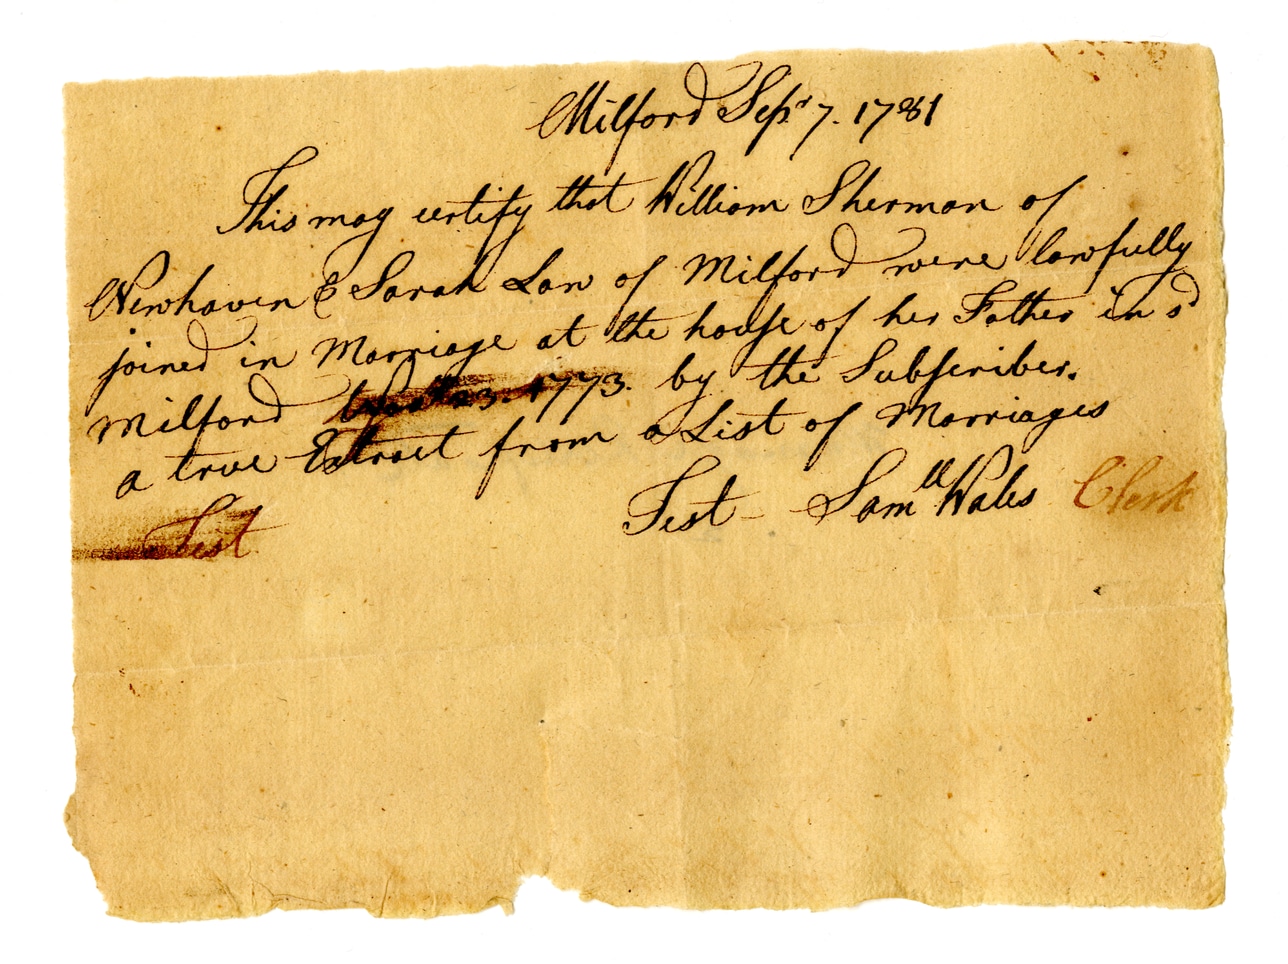 Milford Sepr 7. 1781
This may certify that William Sherman of
Newhaven & Sarah Law of Milford were lawfully
joined in Marriage at the house of her Father in sd
Milford 23. 1773. by the Subscriber.
a true Extract from a List of Marriages
Test - Samll Wales Clerk
Test